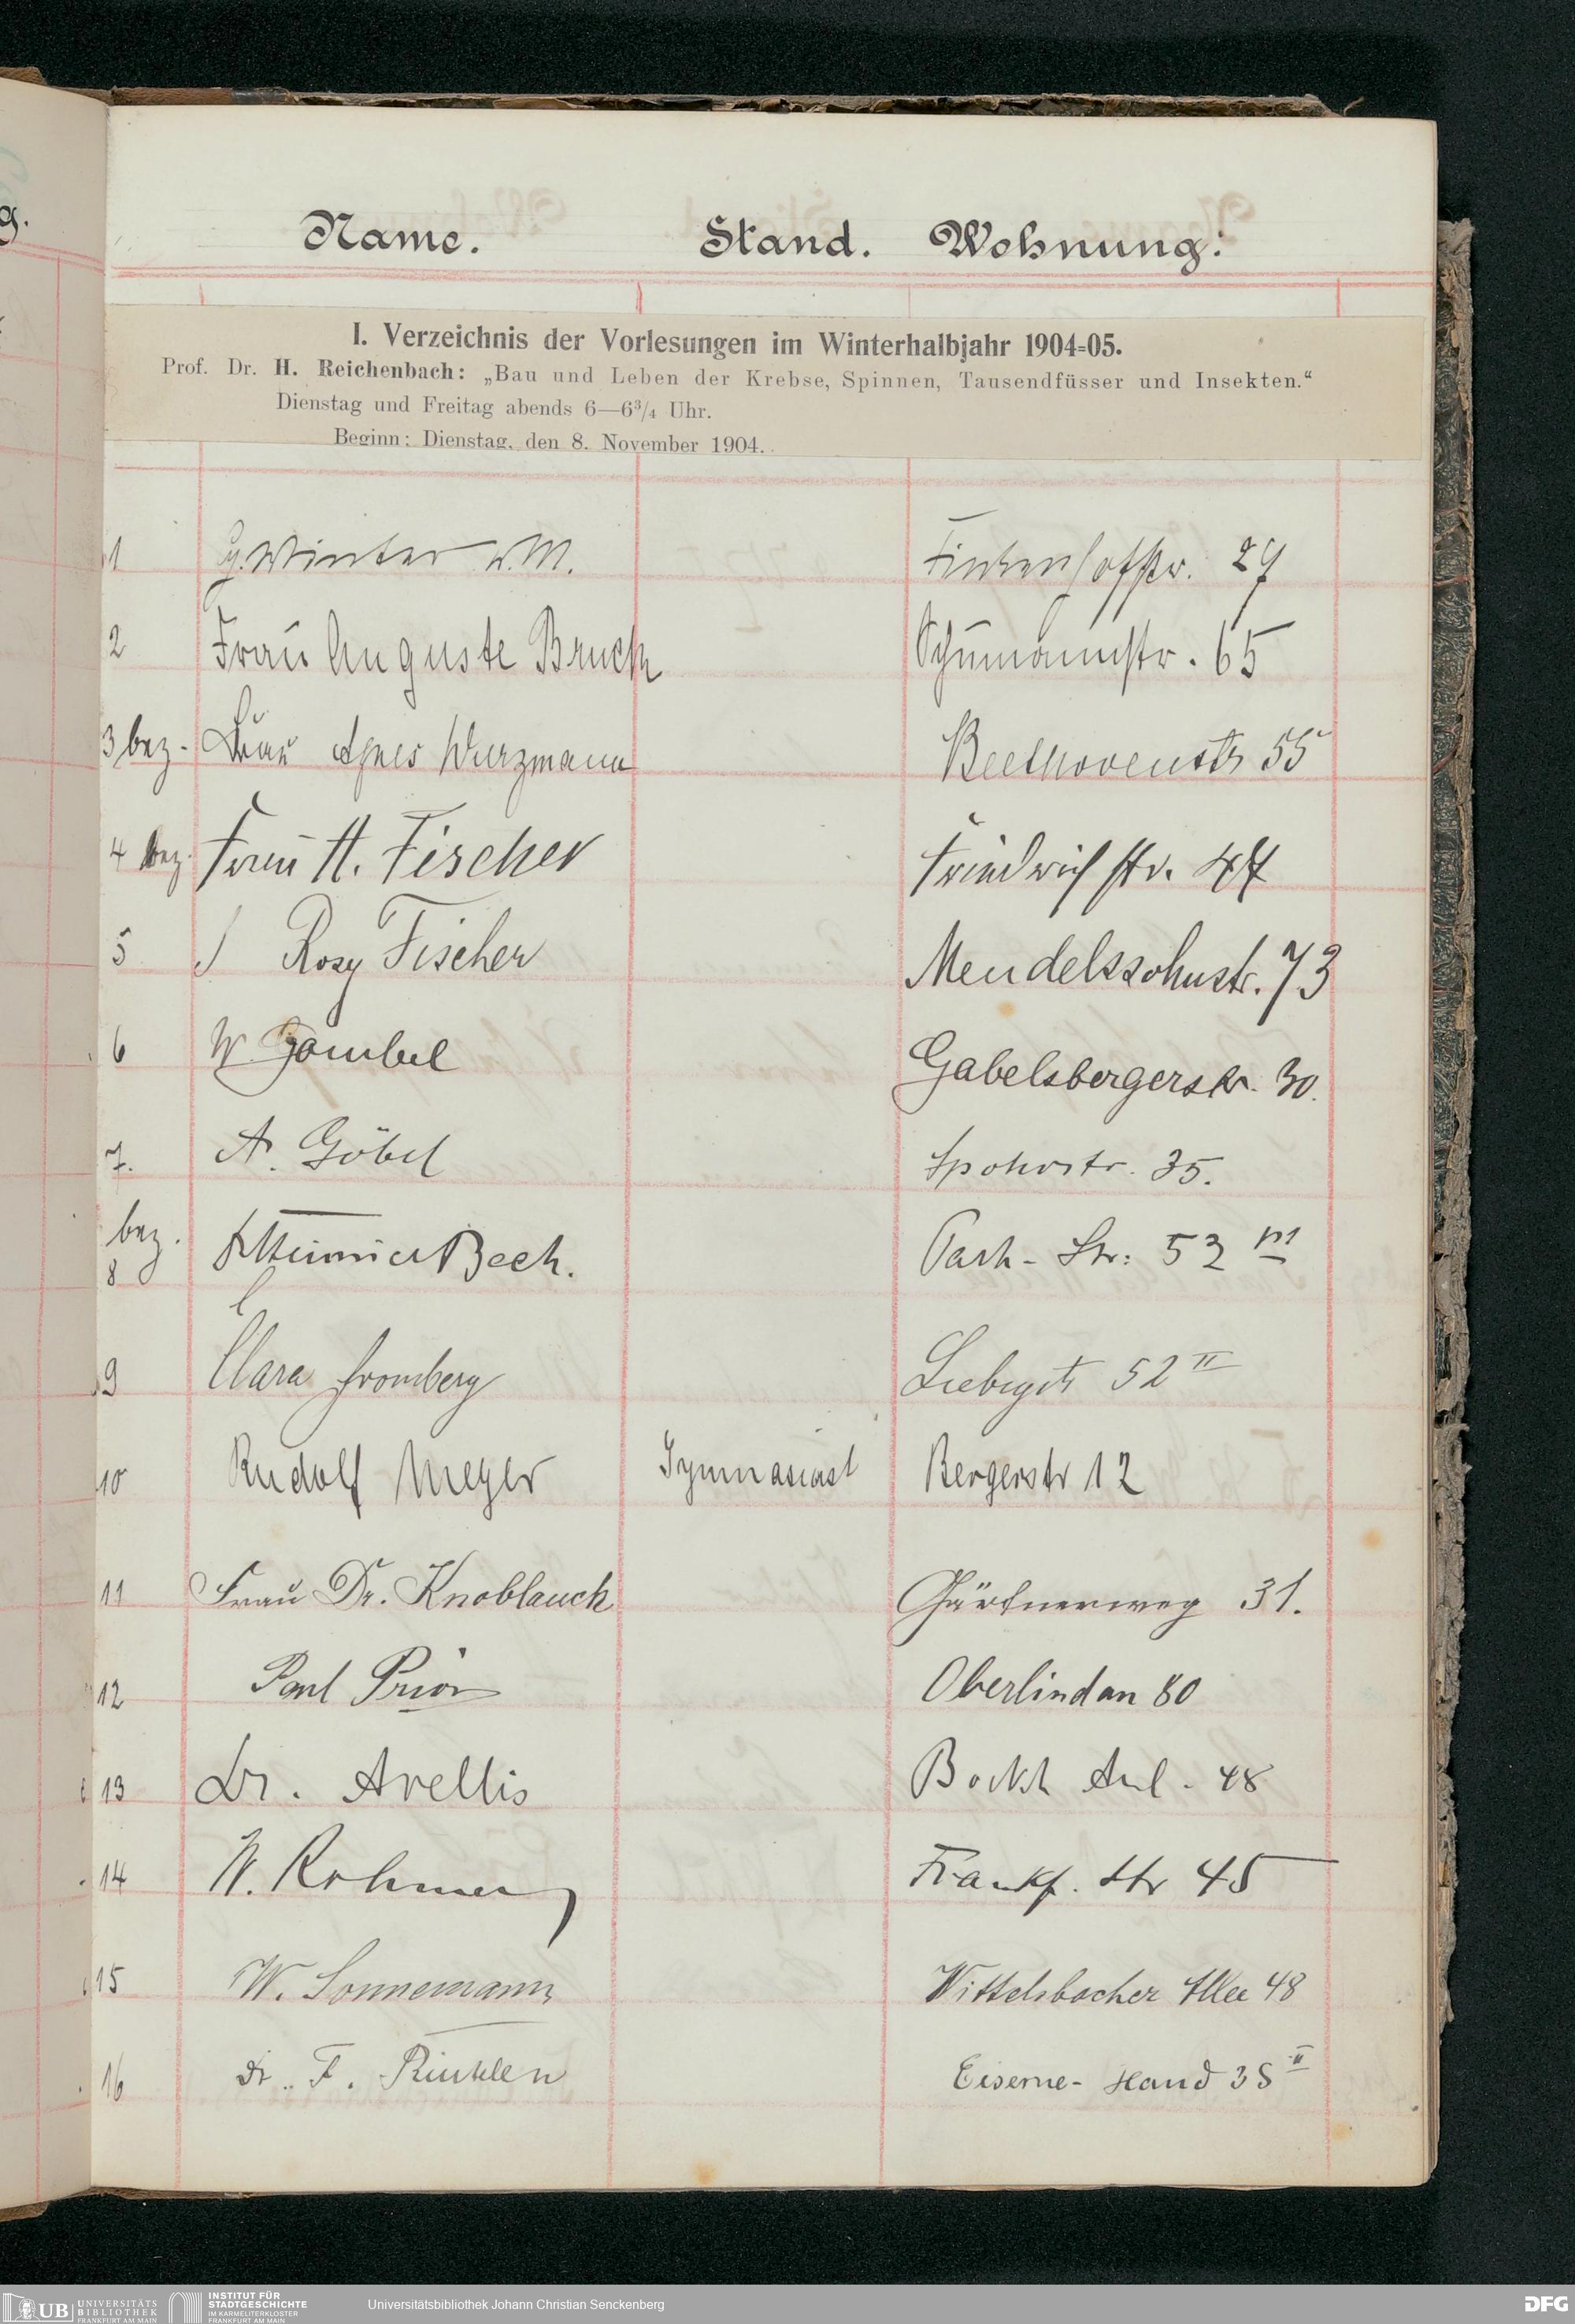 Name. Stand. Wohnung:
I. Verzeichnis der Vorlesungen im Winterhalbjahr 1904-05.
Prof. Dr. H. Reichenbach: „Bau und Leben der Krebse, Spinnen, Tausendfüsser und Insekten.“
Dienstag und Freitag abends 6—6³/₄ Uhr.
Beginn: Dienstag, den 8. November 1904.
1 G. Winter w.M. Finkenhofstr. 27
2 Frau Auguste Bruck Schumannstr. 65
3 bez. Frau Agnes Wurzmann Beethovenstr 55
4 bez. Frau H. Fischer Friedrichstr. 44
5 Rosy Fischer Mendelssohnstr. 73
6 W. Gombel Gabelsbergerstr. 30.
7. A. Göbel Spohrstr. 35.
bez.
8 Beck. Park-Str: 52 III
9 Clara Fromberg Liebigstr 52 II
10 Rudolf Meyer Gymnasiast Bergerstr 12
11 Frau Dr. Knoblauch Gärtnerweg 31.
12 Paul Prior Oberlindau 80
13 Dr. Avellis Bockh Anl. 48
14 W. Rohmer Frankf. Str 45
15 W. Sonnemann Wittelsbacher Allee 48
16 Dr. F. Eiserne-Hand 35 II
UB UNIVERSITÄTS
BIBLIOTHEK
FRANKFURT AM MAIN
INSTITUT FÜR
STADTGESCHICHTE
IM KARMELITERKLOSTER
FRANKFURT AM MAIN
Universitätsbibliothek Johann Christian Senckenberg
DFG